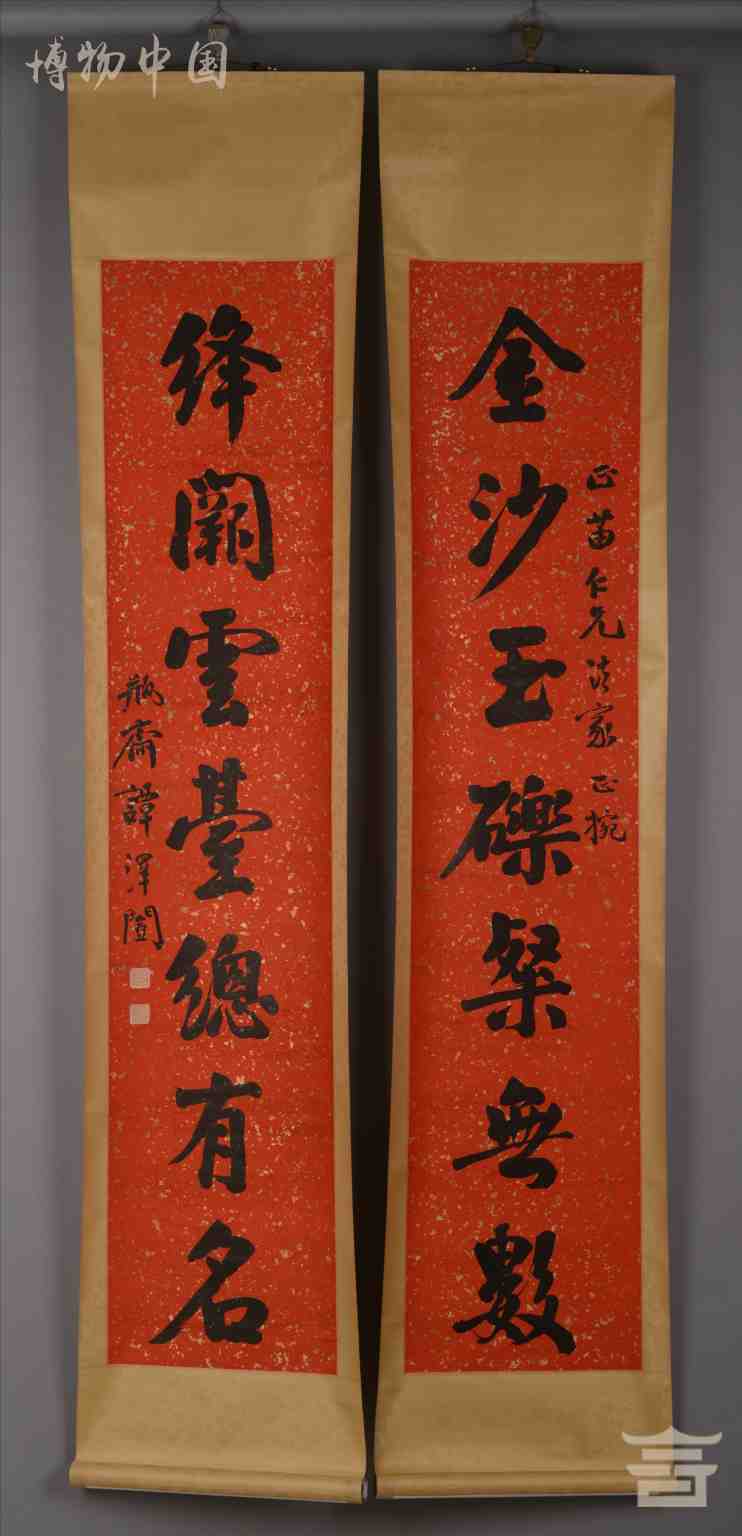 博物中国
金沙玉礫粲無數
正菑仁兄法家正捥
絳闕雲臺總有名
瓶齋譚澤闓